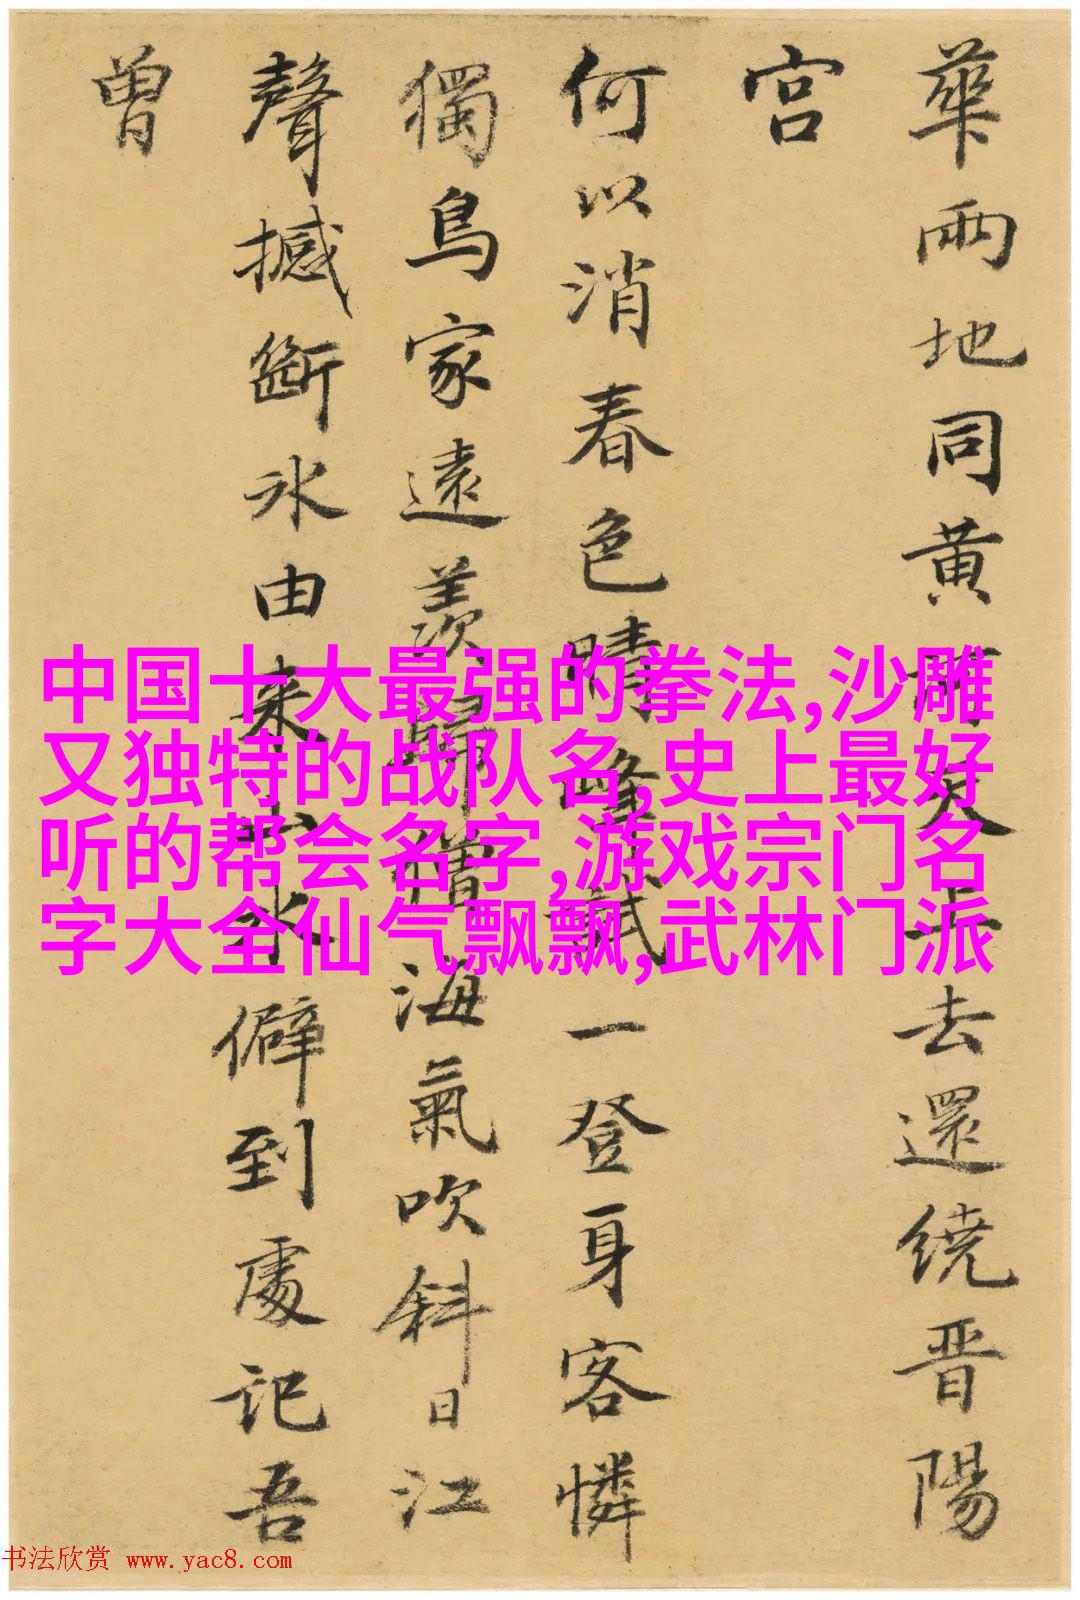 華兩地同黃河天上去還繞晋陽
宮
何以消春色晴峰試一登身客憐
獨鳥家遠羨歸僧海氣吹斜日江
聲撼斷冰由来山水僻到處記吾
曾
中国十大最强的拳法,沙雕
又独特的战队名,史上最好
听的帮会名字,游戏宗门名
字大全仙气飘飘,武林门派
书法欣赏 www.yac8.com